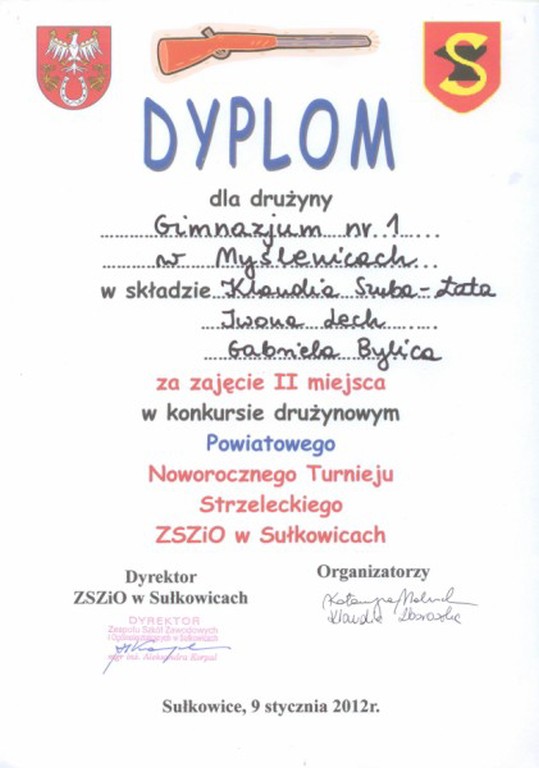 DYPLOM
dla drużyny
Gimnazjum nr 1
w Myślenicach
w składzie Klaudia Szuba-Łata
Iwona Lech
Gabriela Bylica
za zajęcie II miejsca
w konkursie drużynowym
Powiatowego
Noworocznego Turnieju
Strzeleckiego
ZSZiO w Sułkowicach
Dyrektor
ZSZiO w Sułkowicach
Organizatorzy
Katarzyna
Klaudia
DYREKTOR
Zespołu Szkół Zawodowych
i Ogólnokształcących w Sułkowicach
mgr inż. Aleksandra Korpal
Sułkowice, 9 stycznia 2012r.